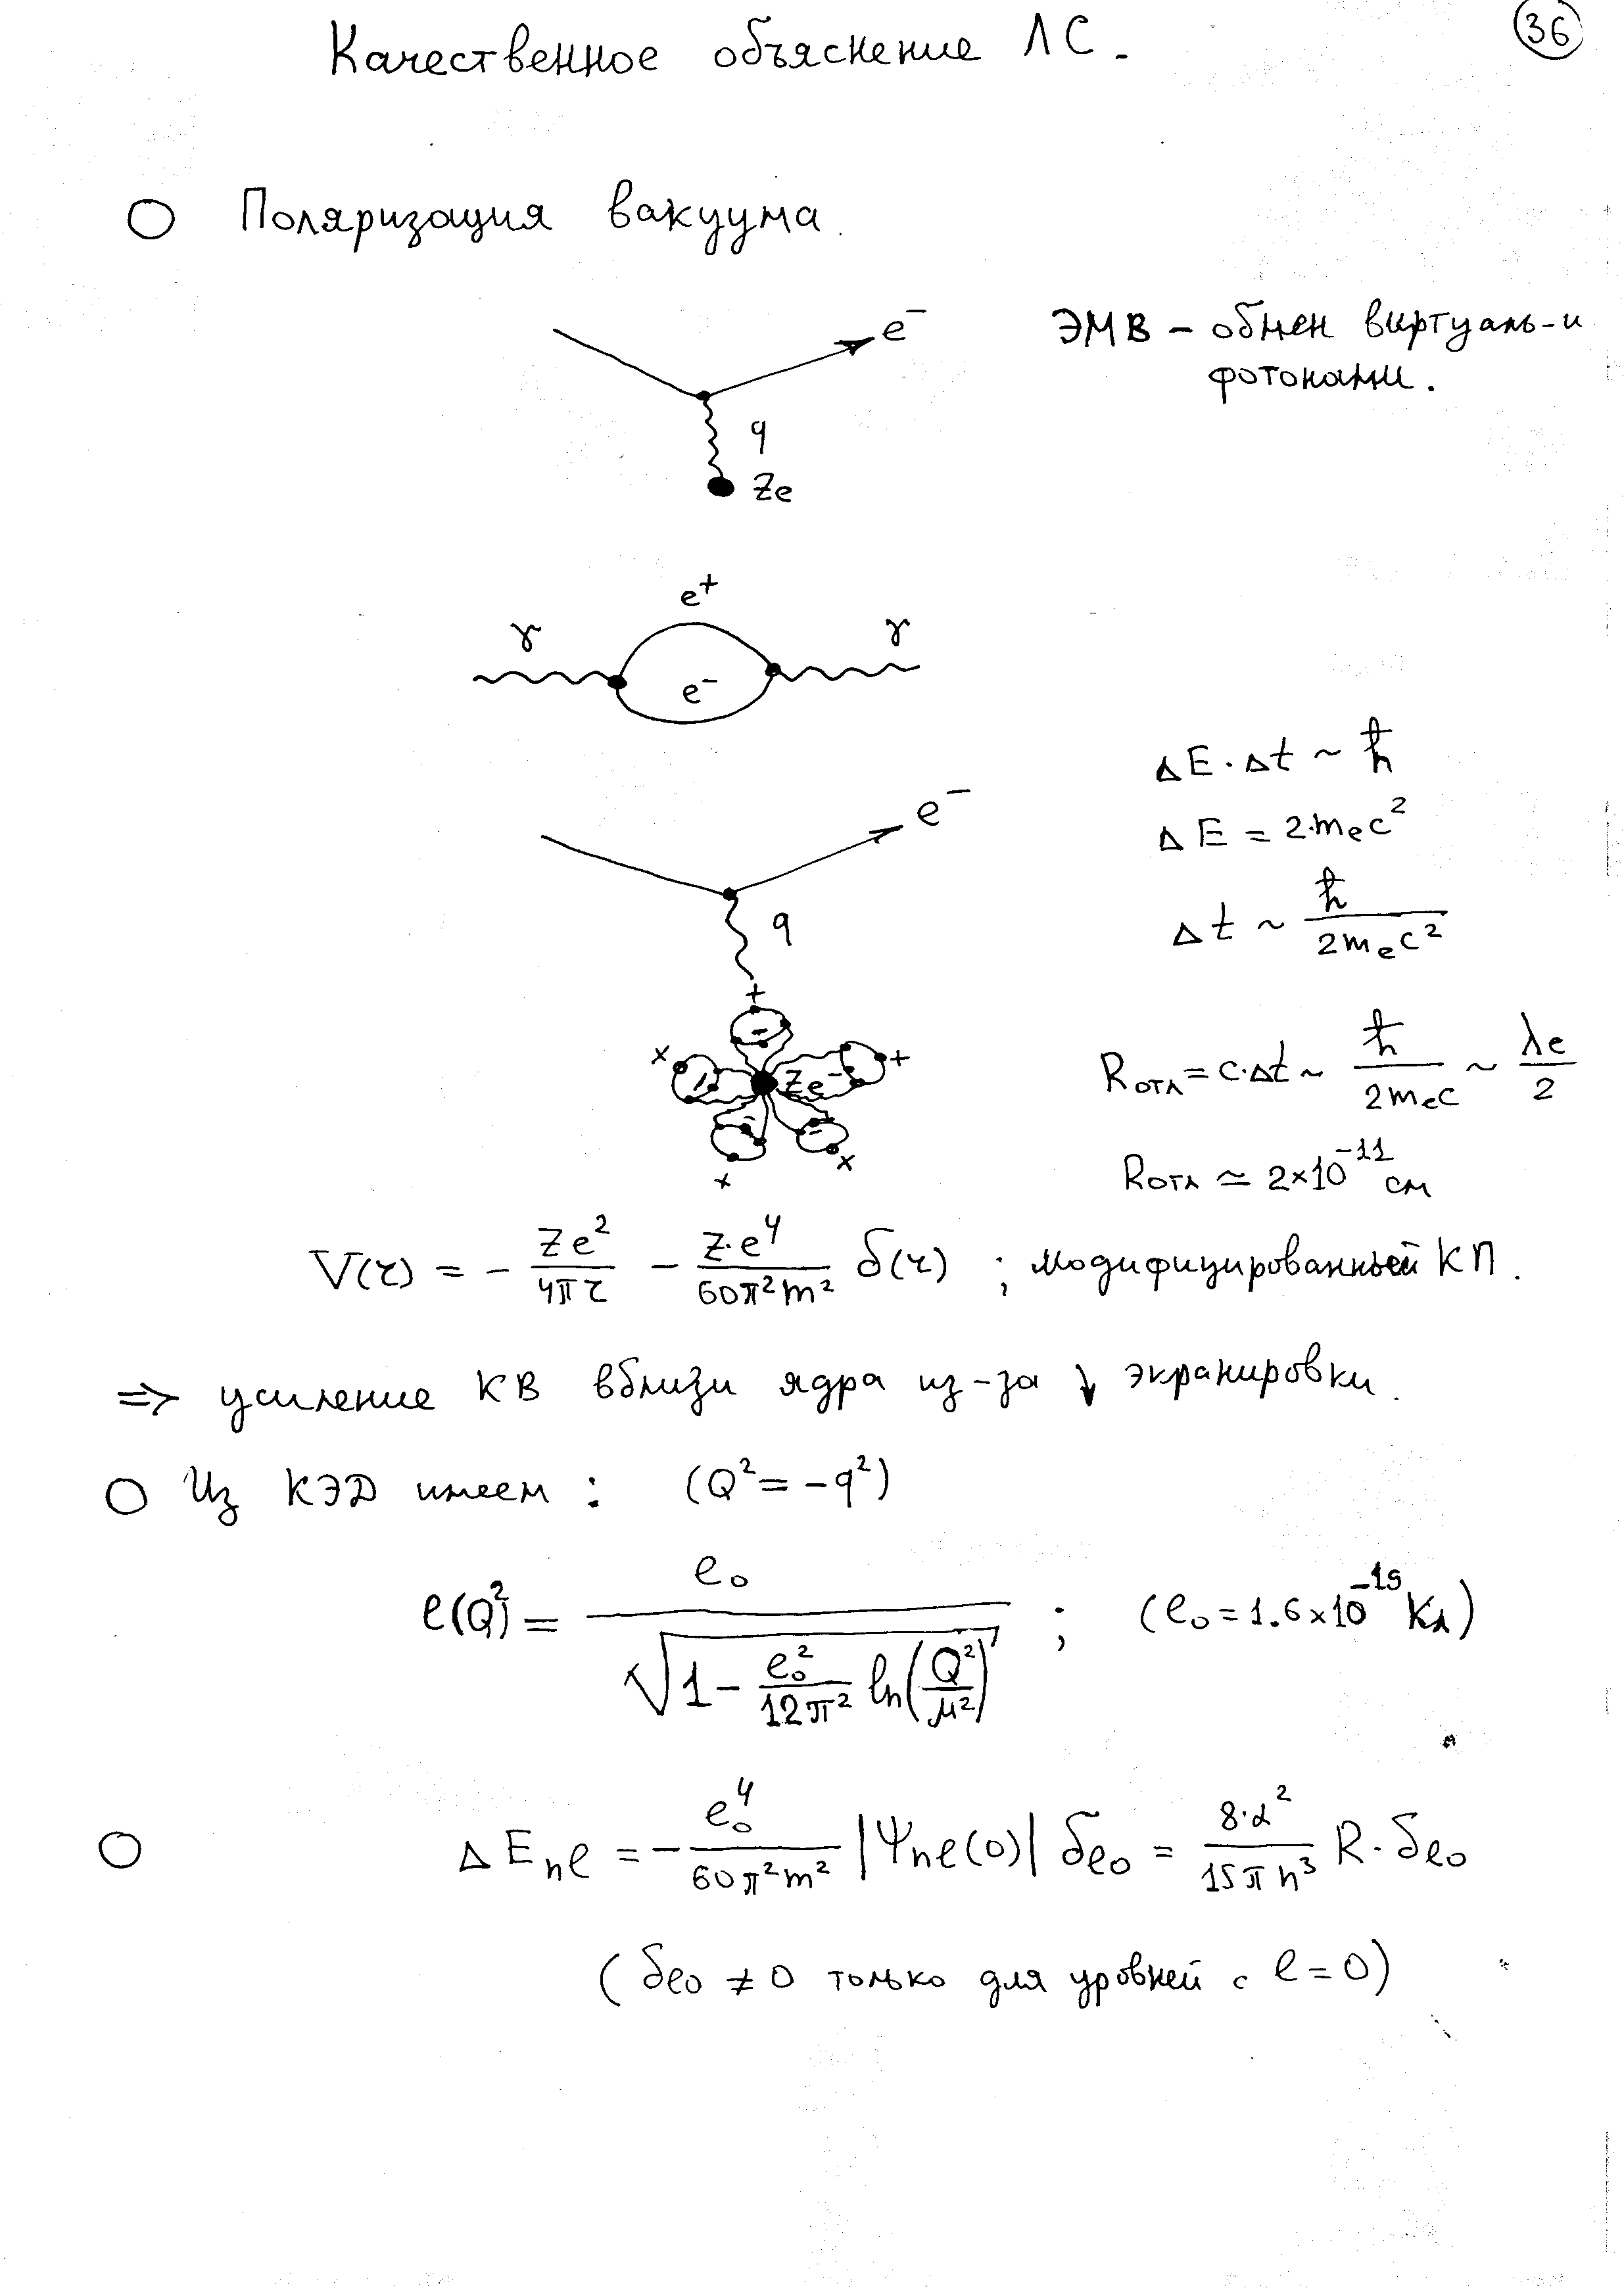 36
Качественное объяснение ЛС.
○ Поляризация вакуума.
e⁻
ЭМВ – обмен виртуаль-и
фотонами.
q
Ze
e⁺
γ γ
e⁻
ΔE · Δt ~ ħ
ΔE = 2·mₑc²
e⁻
Δt ~ ħ / 2mₑc²
q
+
-
x - Ze - +
- -
x x
Rотл = c·Δt ~ ħ / 2mₑc ~ λe / 2
Rотл ≃ 2×10⁻¹¹ см
V(r) = - Ze² / 4πr - Z·e⁴ / 60π²m² δ(r) ; модифицированный КП.
=> усиление КВ вблизи ядра из-за ↓ экранировки.
○ Из КЭД имеем : (Q² = -q²)
e(Q²) = e₀ / √(1 - e₀² / 12π² ln(Q² / μ²)) ; (e₀ = 1.6×10⁻¹⁹ Кл)
○ ΔEnl = - e₀⁴ / 60π²m² |Ψnl(0)| δl0 = 8·α² / 15πn³ R·δl0
(δl0 ≠ 0 только для уровней с l = 0)